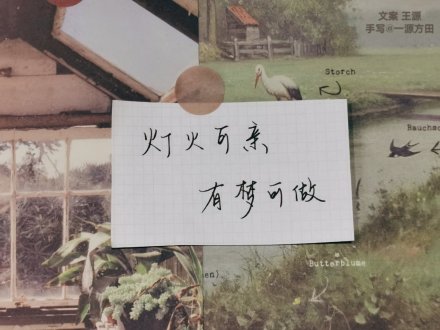 文案 王源
手写@一源方田
Storch
灯火可亲
有梦可做
Butterblume